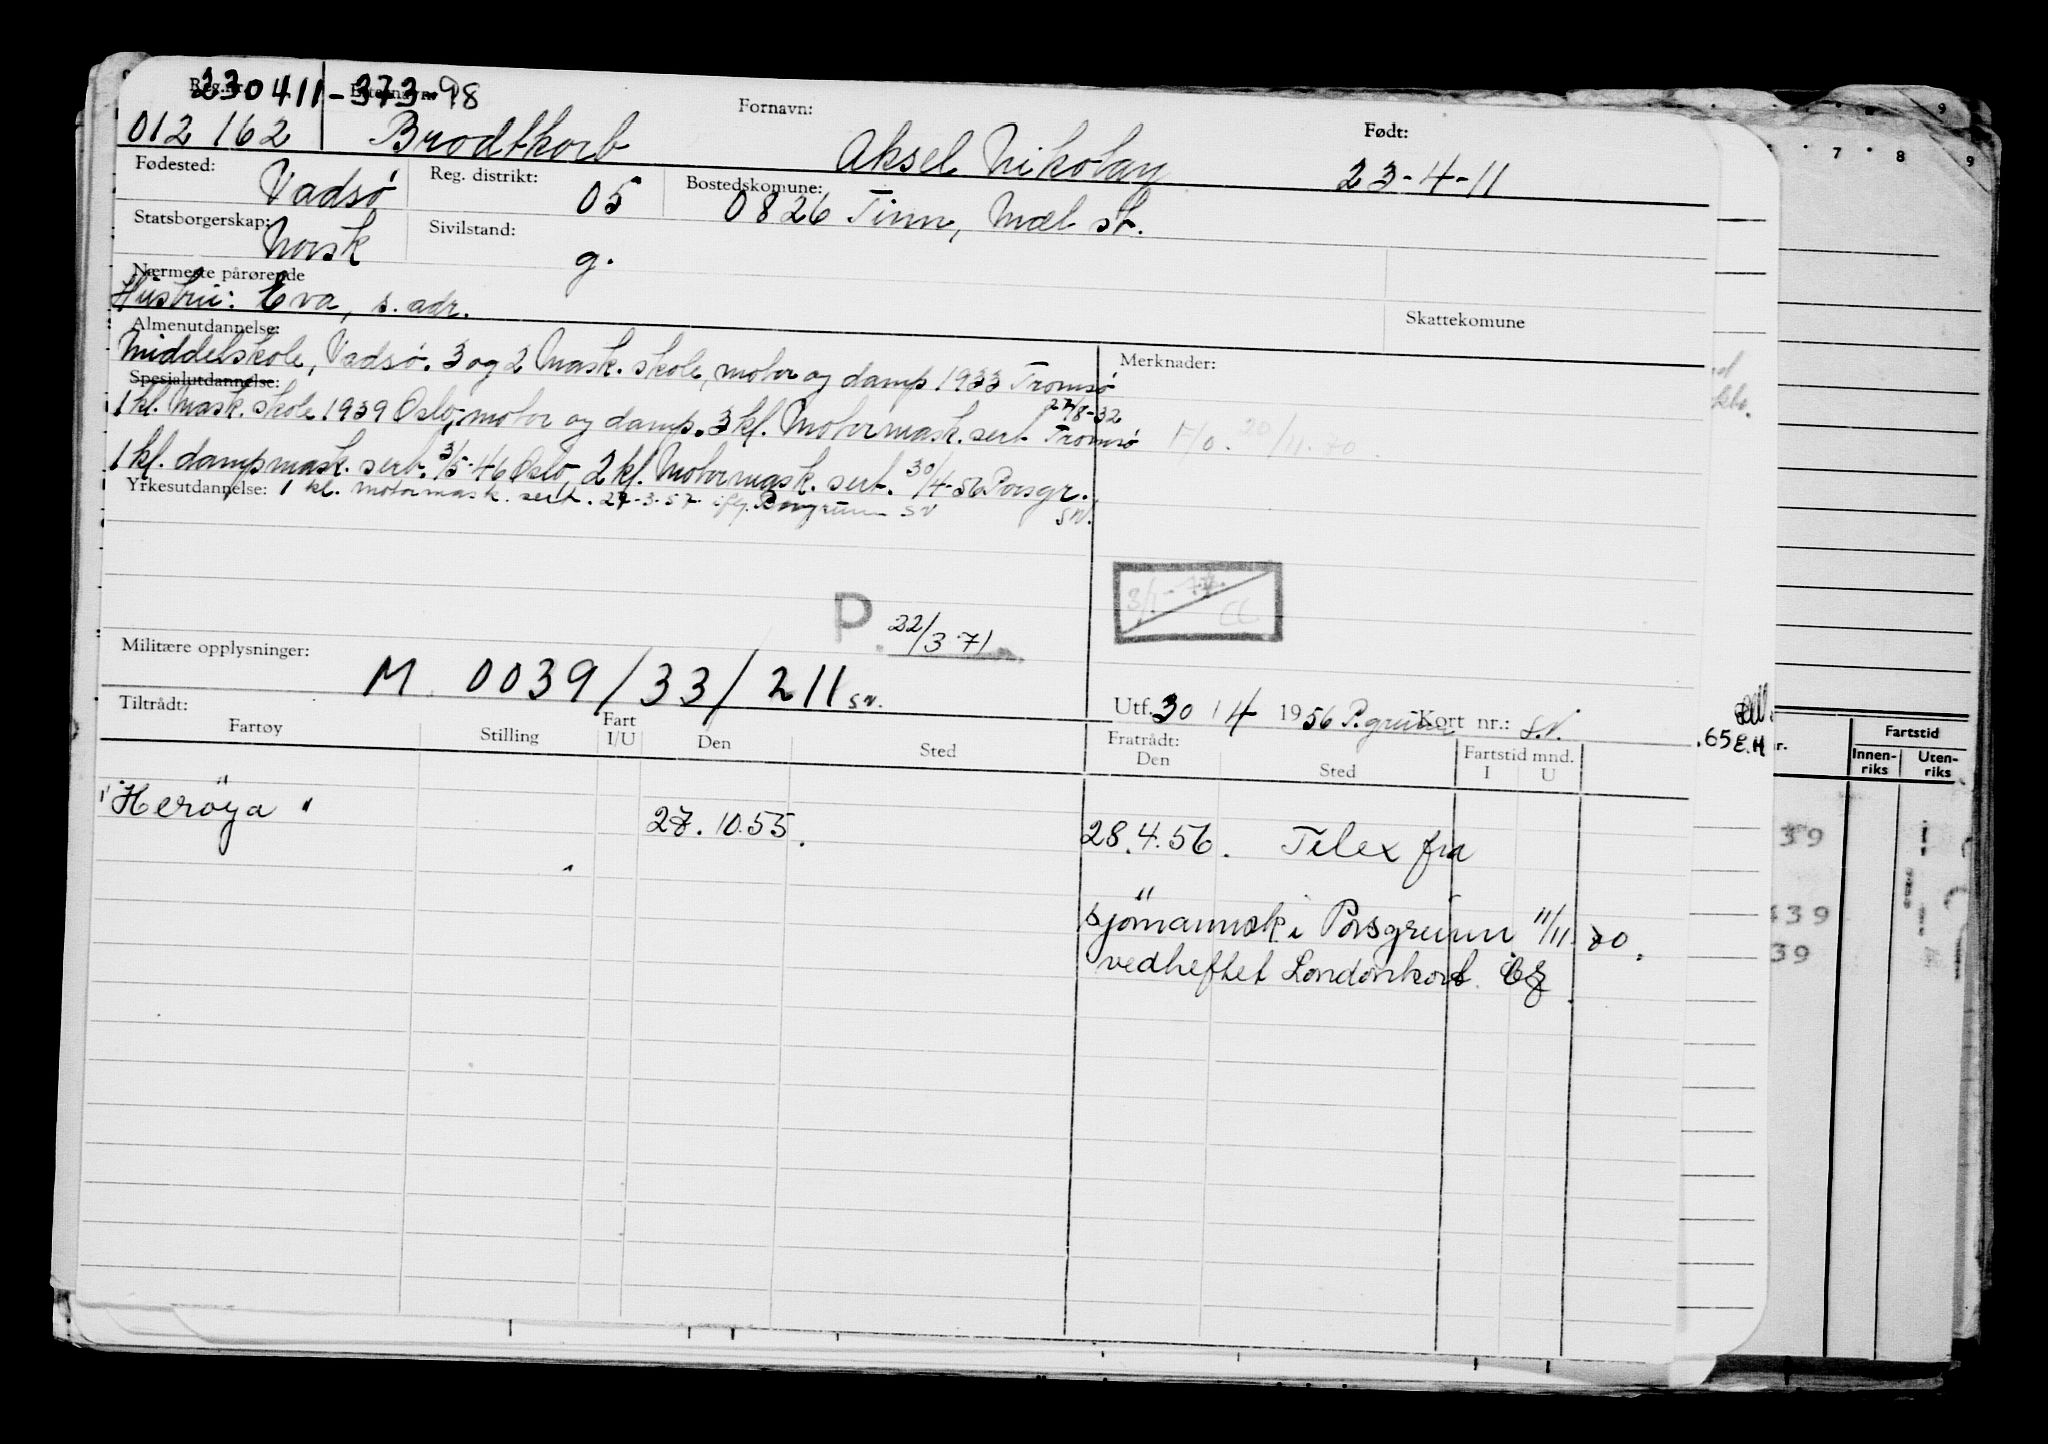 230411-37398
Reg.nr. Etternavn: Fornavn: Født:
012 162 Brodtkorb Aksel Nikolay 23-4-11
Fødested: Vadsø Reg. distrikt: 05 Bostedskomune: 0826 Tinn, Mæl st.
Statsborgerskap: Norsk Sivilstand: g.
Nærmeste pårørende
Hustru: Eva, s. adr. Skattekomune
Almenutdannelse: Merknader:
Middelskole, Vadsø. 3 og 2 Mask. skole, motor og damp 1933 Tromsø
Spesialutdannelse:
1 kl. Mask. skole 1939 Oslo, motor og damp. 3 kl. Motormask. sert. 27/8-32 Tromsø
F/o. 20/11.70.
1 kl. dampmask. sert. 3/5-46 Oslo, 2 kl. Motormask. sert. 30/4-56 Porsgr.
Yrkesutdannelse: 1 kl. motormask. sert. 27-3-57 iflg. Porsgrunn SN SN.
P. 22/3 71
Militære opplysninger: M. 0039/33/211 SN.
Tiltrådt: Utf. 30/4 1956 P.grunn Kort nr.: S.N.
Fartøy Stilling Fart I/U Den Sted Fratrådt: Den Sted Fartstid mnd. I U
"Herøya" 27.10.55. 28.4.56. Telex fra
sjömannsk i Porsgrunn 11/11.70.
vedheftet Londonkort.
7 8 9
9
.65 E.H
Fartstid
Innen-riks Uten-riks
39
439
39